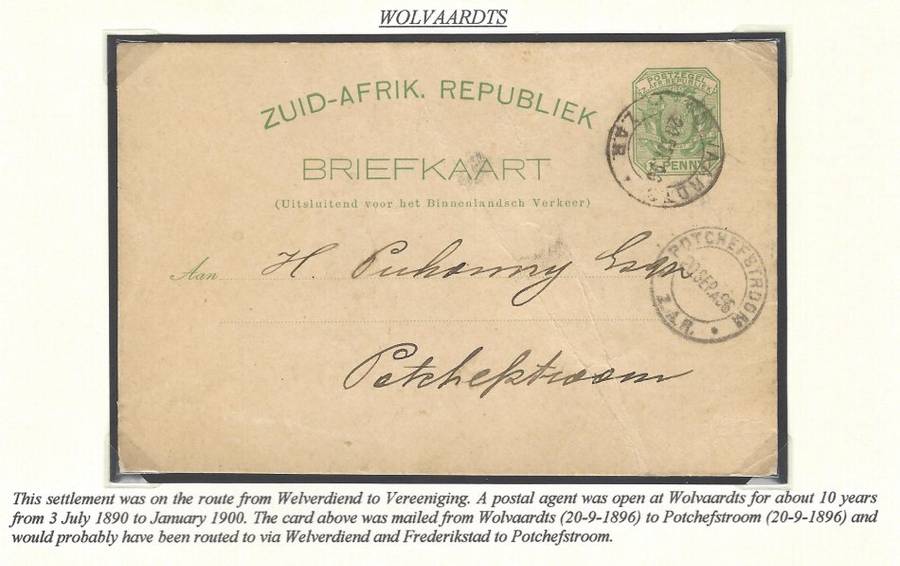 WOLVAARDTS
ZUID-AFRIK. REPUBLIEK
POSTZEGEL
Z. AFR. REPUBLIEK
PENNY
WOLVAARDTS
Z.A.R.
BRIEFKAART
(Uitsluitend voor het Binnenlandsch Verkeer)
POTCHEFSTROOM
SEP. 96
Z.A.R.
Aan H. Puhanny Esqr
Potchefstroom
This settlement was on the route from Welverdiend to Vereeniging. A postal agent was open at Wolvaardts for about 10 years
from 3 July 1890 to January 1900. The card above was mailed from Wolvaardts (20-9-1896) to Potchefstroom (20-9-1896) and
would probably have been routed to via Welverdiend and Frederikstad to Potchefstroom.